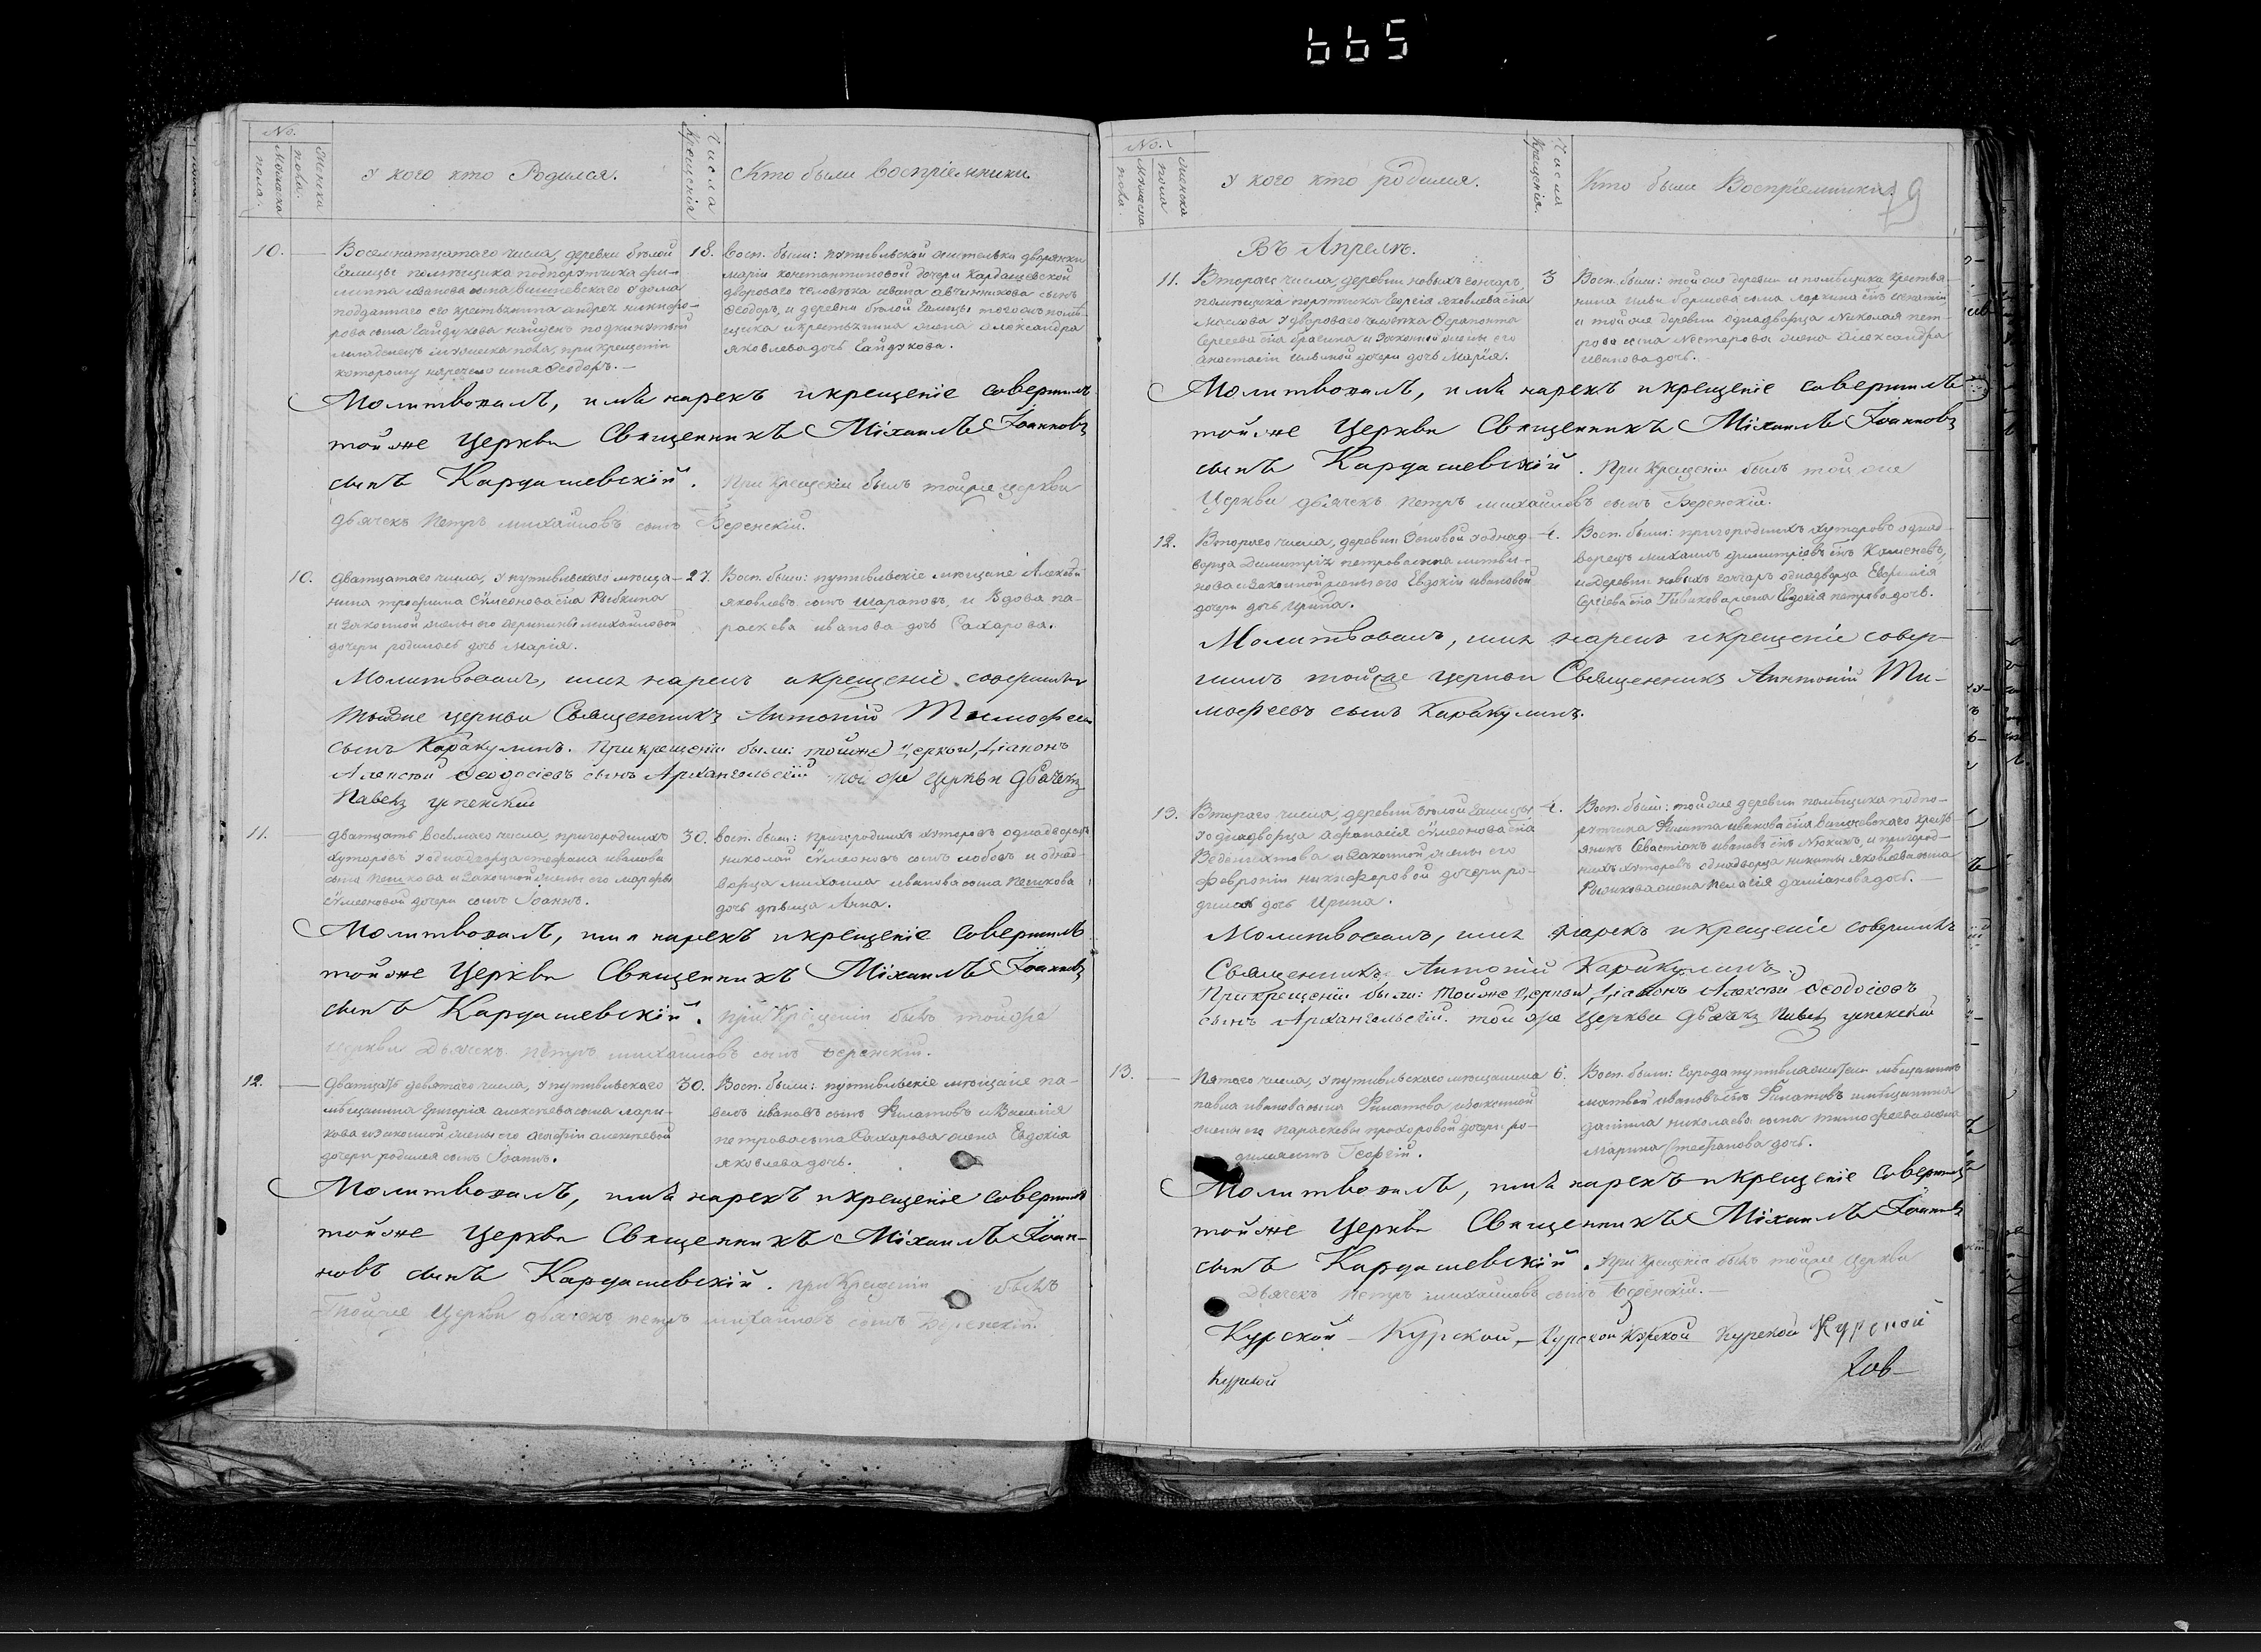 665
No.
Мужеска пола.
Женска пола.
У кого кто Родился.
Числа Крещенія
Кто были восприемники
10.
Восемнатцатого числа, деревни бѣлой
Галицы помѣщика подпорутчика фи-
липпа иванова сына вишневскаго у дома
подданаго его крестьянина андрея никифо-
рова сына Гайдукова найденъ подкинутый
младенецъ мужеска пола, при крещеніи
которому наречено имя Феодоръ.—
18.
Восп. были: путивльской жительки дворянки
маріи константиновой дочери Кардашевской
двороваго человѣка ивана авчинникова сынъ
Феодоръ, и деревни бѣлой Галицы того жъ помѣ-
щика крестьянина жена александра
яковлева дочь Гайдукова.
Молитвовалъ, имя нарекъ и крещеніе совершилъ
тойже Церкви Священникъ Міхаилъ Іоанновъ
сынъ Кардашевскій. При крещеніи былъ тойже церкви
дьячекъ Петръ михайловъ сынъ Беренскій.
10.
Дватцатаго числа, у путивльскаго мѣща-
нина трофима Сѷмеонова сна Рыбкина
и законной жены его агрипины михайловой
дочери родилась дочь марія.
27.
Восп. были: путивльскіе мѣщане Алексѣй
яковлевъ сынъ Шараповъ, и вдова па-
раскева иванова дочь Сахарова.
Молитвовалъ, имя нарекъ и крещеніе совершилъ
тойже церкви Священникъ Антоній Тимофеевъ
сынъ Каракулинъ. При крещеніи были: тойже церкви Діаконъ
Алексѣй Феодосіевъ сынъ Архангельскій той же Церкви Дьячекъ
Павелъ успенскій
11.
Дватцать восьмаго числа, пригородныхъ
хуторовъ у однодворца стефана иванова
сына Пешкова и законной жены его марфы
сѷмеоновой дочери сынъ Іоаннъ.
30.
Восп. были: Пригородныхъ хуторовъ однодворецъ
николай сѷмеоновъ сынъ лобовъ и однод-
ворца михаила иванова сына Пешкова
дочь дѣвица Анна.
Молитвовалъ, имя нарекъ и крещеніе совершилъ
тойже Церкви Священникъ Міхаилъ Іоанновъ
сынъ Кардашевскій. при крещеніи былъ тойже
церкви Дьячекъ Петръ михайловъ сынъ Беренскій.
12.
Дватцать девятаго числа, у путивльскаго
мѣщанина григорія алексѣева сына мари-
кова и законной жены его агафіи алексѣевой
дочери родился сынъ Іоаннъ.
30.
Восп. были: путивльскіе мѣщане па-
велъ ивановъ сынъ Филатовъ и Василія
петрова сына Сахарова жена Евдокія
яковлева дочь.
Молитвовалъ, имя нарекъ и крещеніе совершилъ
тойже Церкви Священникъ Міхаилъ Іоан-
новъ сынъ Кардашевскій. при крещеніи былъ
Тойже Церкви дьячекъ петръ михайловъ сынъ Беренскій.
No.
Мужеска пола.
Женска пола
У кого кто родился.
Числа Крещенія.
Кто были Восприемники.
79
Въ Апрелѣ.
11.
Втораго числа, деревни новыхъ гончаръ
помѣщика порутчика Георгія яковлева сна
маслова у двороваго человѣка Ферапонта
Сергеева сна брагина и законной жены его
анастасіи ильиной дочери дочь Марія.
3
Восп. были: той же деревни и помѣщика крестья-
нина сына ларкина снъ игнатій
и той же деревни однодворца Николая пет-
рова сына Нестерова жена Александра
иванова дочь.
Молитвовалъ, имя нарекъ и крещеніе совершилъ
тойже Церкви Священникъ Міхаилъ Іоанновъ
сынъ Кардашевскій. При крещеніи былъ той же
Церкви дьячекъ Петръ михайловъ сынъ Беренскій.
12.
Втораго числа, деревни у однод-
ворца Димитрія петрова сына литви-
нова и законной жены его Евдокіи ивановой
дочери дочь Ирина.
4.
Восп. были: пригородныхъ хуторовъ однод-
ворецъ михаилъ димитріевъ снъ Каменевъ,
и деревни новыхъ гончаръ однодворца
Сергіева сна жена Евдокія петрова дочь.
Молитвовалъ, имя нарекъ и крещеніе совер-
шилъ тойже церкви Священникъ Антоній Ти-
мофеевъ сынъ Каракулинъ.
13.
Втораго числа, деревни бѣлой Галицы
у однодворца афанасія сѷмеонова сна
и законной жены его
Февроніи никифоровой дочери ро-
дилась дочь Ирина.
4.
Восп. были: той же деревни помѣщика подпо-
рутчика Филиппа иванова сна вишневскаго крест-
янинъ Севастіанъ ивановъ снъ Нюкинъ, и пригород-
нихъ хуторовъ однодворца никиты яковлева сына
Рыжикова жена Пелагія даміанова дочь.—
Молитвовалъ, имя нарекъ и крещеніе совершилъ
Священникъ Антоній Каракулинъ.
При крещеніи были: Тойже Церкви Діаконъ Алексѣй Феодосіевъ
сынъ Архангельскій. той же Церкви Дьячекъ Павелъ успенскій
13.
Пятаго числа, у путивльскаго мѣщанина
павла иванова сына Филатова и законной
жены его параскевы прохоровой дочери ро-
дился сынъ Георгій.
6.
Восп. были: города путивля жители мѣщанинъ
матвей ивановъ снъ Филатовъ и мѣщанина
даніила николаева сына тимофеева жена
марина Стефанова дочь.
Молитвовалъ, имя нарекъ и крещеніе совершилъ
тойже Церкви Священникъ Міхаилъ Іоанновъ
сынъ Кардашевскій. При крещеніи былъ тойже церкви
Дьячекъ Петръ михайловъ сынъ Беренскій.—
Курской – Курской, – Курской Курской Курской Курской
Курской